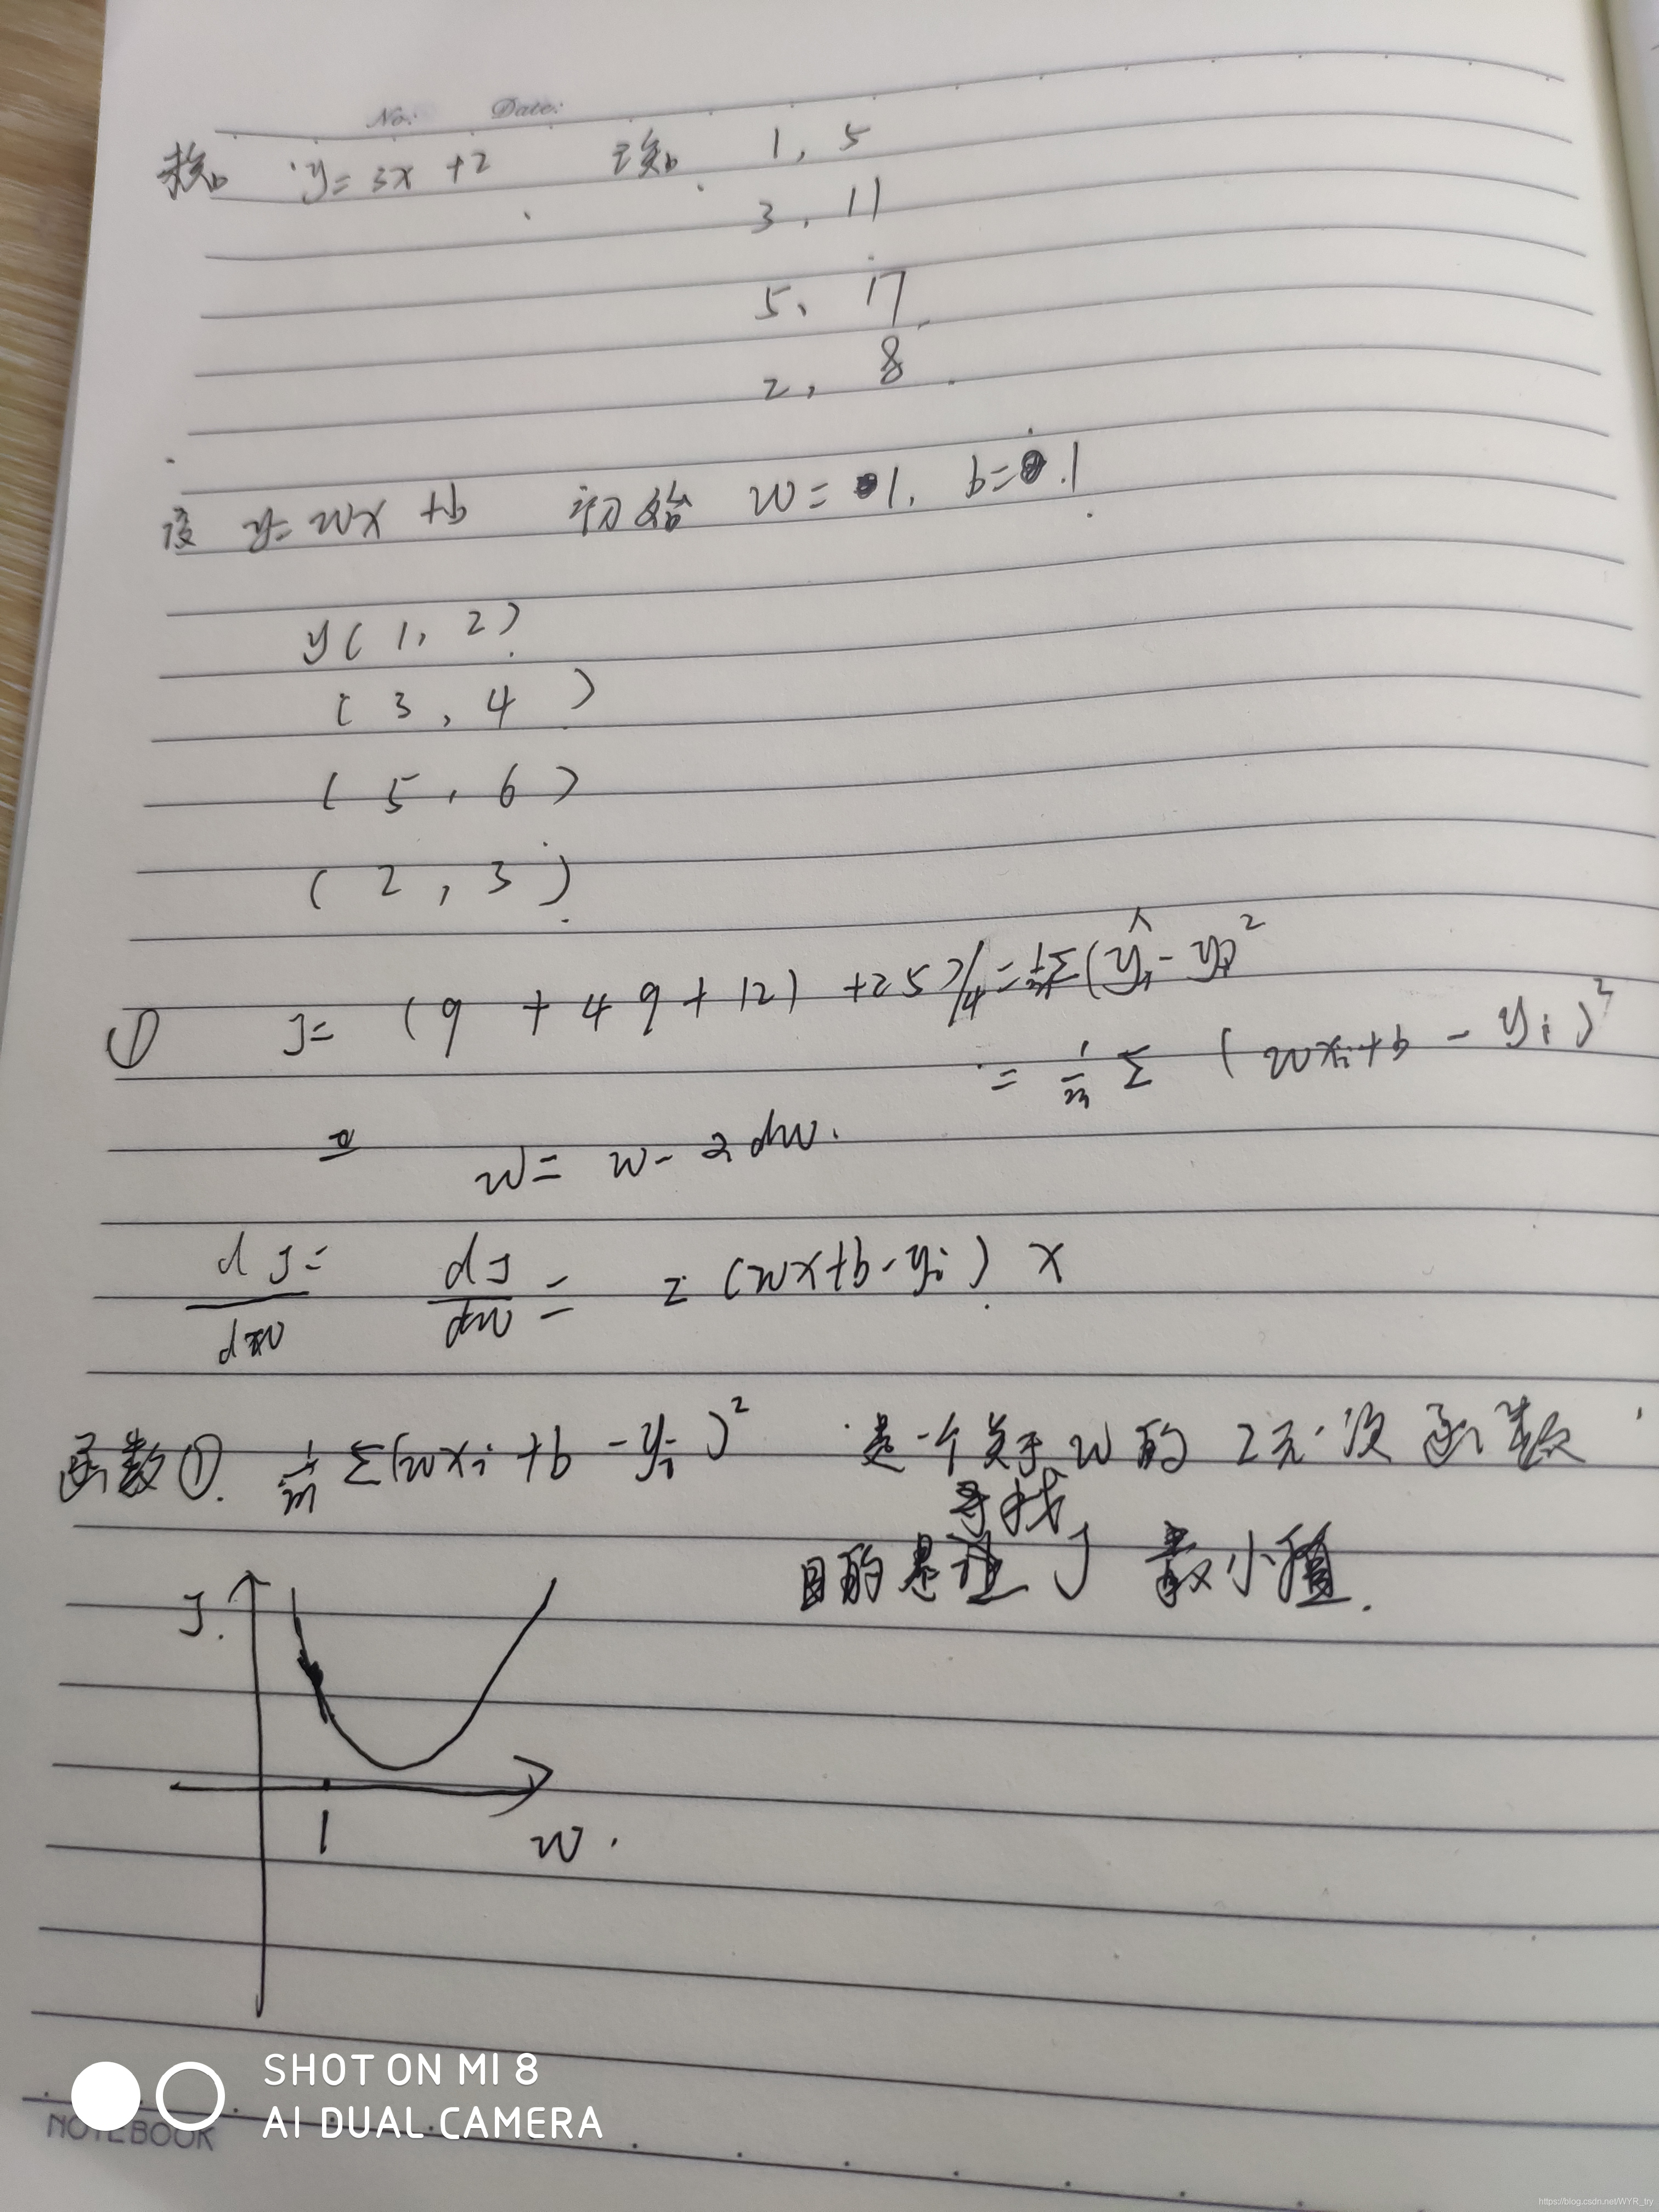 No: Date:
求知 y=3x+2 已知 1, 5
3, 11
5, 17
2, 8
设 y=wx+b 初始 w=1, b=1
y(1, 2)
(3, 4)
(5, 6)
(2, 3)
① J= (9+49+121+25)/4=1/m Σ(ŷi-yi)²
= 1/m Σ (wxi+b-yi)²
w= w-2dw.
dJ/dw= dJ/dw= 2(wx+b-yi) x
函数①. 1/m Σ(wxi+b-yi)² 是一个关于w的2元一次函数
寻找
目的是让J 最小值.
J.
1
w.
SHOT ON MI 8
AI DUAL CAMERA
NOTEBOOK
https://blog.csdn.net/WYR_try